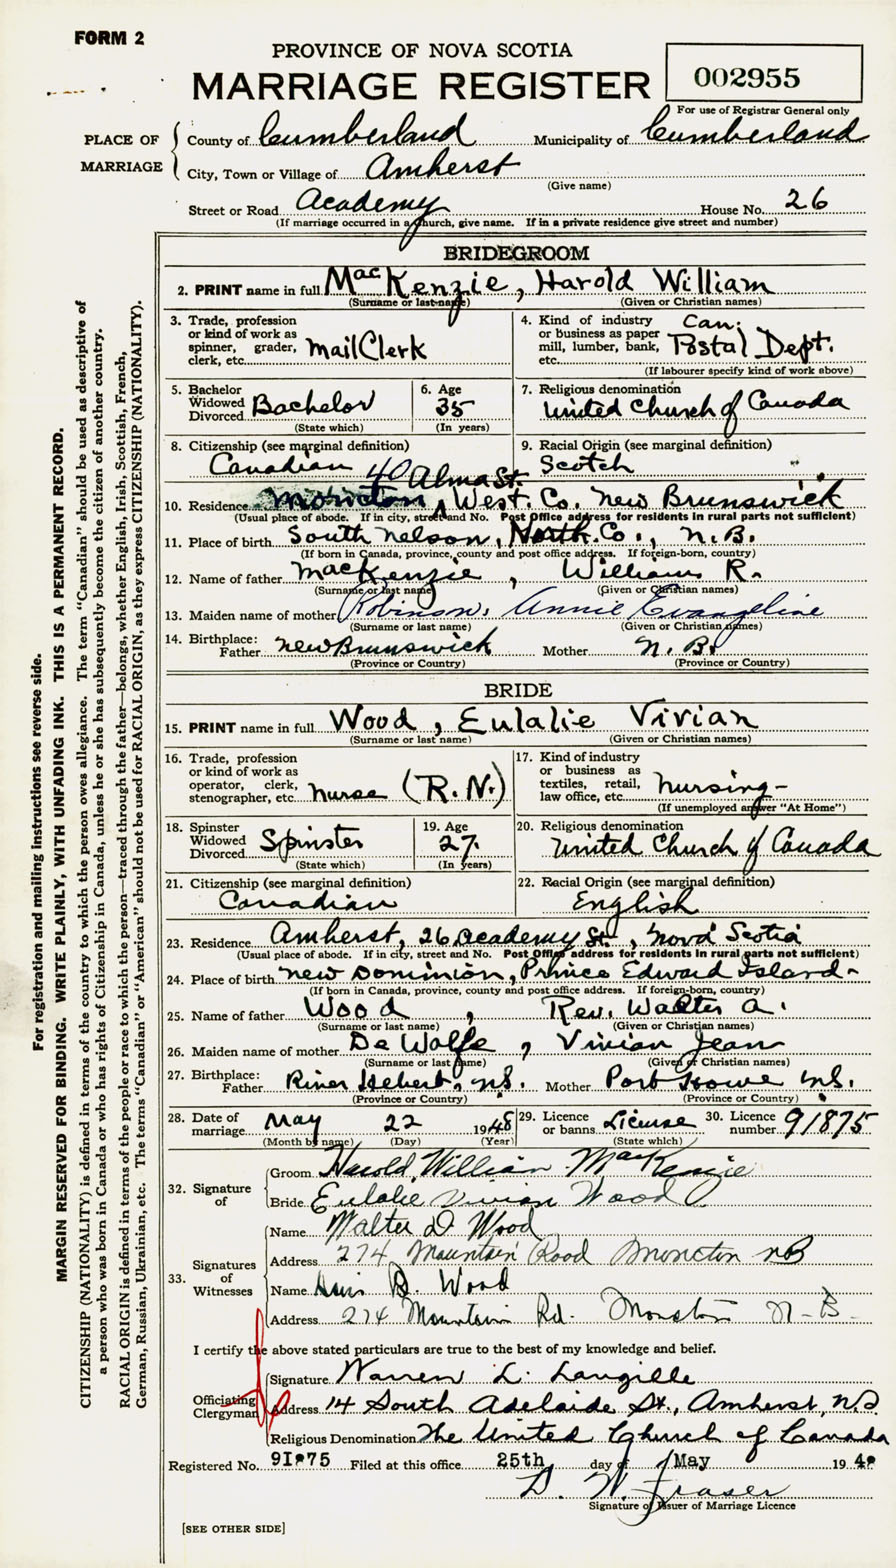 FORM 2
PROVINCE OF NOVA SCOTIA
MARRIAGE REGISTER
002955
For use of Registrar General only
PLACE OF MARRIAGE
County of Cumberland Municipality of Cumberland
City, Town or Village of Amherst
(Give name)
Street or Road Academy House No. 26
(If marriage occurred in a church, give name. If in a private residence give street and number)
BRIDEGROOM
2. PRINT name in full MacKenzie, Harold William
(Surname or last name) (Given or Christian names)
3. Trade, profession or kind of work as spinner, grader, clerk, etc. Mail Clerk
4. Kind of industry or business as paper mill, lumber, bank, etc. Can. Postal Dept.
(If labourer specify kind of work above)
5. Bachelor Widowed Divorced Bachelor
(State which)
6. Age 35
(In years)
7. Religious denomination United Church of Canada
8. Citizenship (see marginal definition) Canadian
9. Racial Origin (see marginal definition) Scotch
40 Alma St.
10. Residence Moncton, West. Co. New Brunswick
(Usual place of abode. If in city, street and No. Post Office address for residents in rural parts not sufficient)
11. Place of birth South Nelson, North. Co., N.B.
(If born in Canada, province, county and post office address. If foreign-born, country)
12. Name of father MacKenzie, William R.
(Surname or last name) (Given or Christian names)
13. Maiden name of mother Robinson, Annie Evangeline
(Surname or last name) (Given or Christian names)
14. Birthplace: Father New Brunswick Mother N.B.
(Province or Country) (Province or Country)
BRIDE
15. PRINT name in full Wood, Eulalie Vivian
(Surname or last name) (Given or Christian names)
16. Trade, profession or kind of work as operator, clerk, stenographer, etc. Nurse (R.N.)
17. Kind of industry or business as textiles, retail, law office, etc. Nursing-
(If unemployed answer "At Home")
18. Spinster Widowed Divorced Spinster
(State which)
19. Age 27.
(In years)
20. Religious denomination United Church of Canada
21. Citizenship (see marginal definition) Canadian
22. Racial Origin (see marginal definition) English
23. Residence Amherst, 26 Academy St., Nova Scotia
(Usual place of abode. If in city, street and No. Post Office address for residents in rural parts not sufficient)
24. Place of birth New Dominion, Prince Edward Island-
(If born in Canada, province, county and post office address. If foreign-born, country)
25. Name of father Wood, Rev. Walter A.
(Surname or last name) (Given or Christian names)
26. Maiden name of mother De Wolfe, Vivian Jean
(Surname or last name) (Given or Christian names)
27. Birthplace: Father River Hebert, N.S. Mother Port Howe N.S.
(Province or Country) (Province or Country)
28. Date of marriage May 22 1948
(Month by name) (Day) (Year)
29. Licence or banns License
(State which)
30. Licence number 91875
32. Signature of
Groom Harold William MacKenzie
Bride Eulalie Vivian Wood
33. Signatures of Witnesses
Name Walter D Wood
Address 274 Mountain Road Moncton NB
Name B. Wood
Address 274 Mountain Rd. Moncton N-B-
I certify the above stated particulars are true to the best of my knowledge and belief.
Officiating Clergyman
Signature Warren L. Langille
Address 14 South Adelaide St., Amherst, N.S.
Religious Denomination The United Church of Canada
Registered No. 91875 Filed at this office 25th day of May 1948
D. W. Fraser
Signature of Issuer of Marriage Licence
[SEE OTHER SIDE]
For registration and mailing instructions see reverse side.
MARGIN RESERVED FOR BINDING. WRITE PLAINLY, WITH UNFADING INK. THIS IS A PERMANENT RECORD.
CITIZENSHIP (NATIONALITY) is defined in terms of the country to which the person owes allegiance. The term "Canadian" should be used as descriptive of
a person who was born in Canada or who has rights of Citizenship in Canada, unless he or she has subsequently become the citizen of another country.
RACIAL ORIGIN is defined in terms of the people or race to which the person—traced through the father—belongs, whether English, Irish, Scottish, French,
German, Russian, Ukrainian, etc. The terms "Canadian" or "American" should not be used for RACIAL ORIGIN, as they express CITIZENSHIP (NATIONALITY).